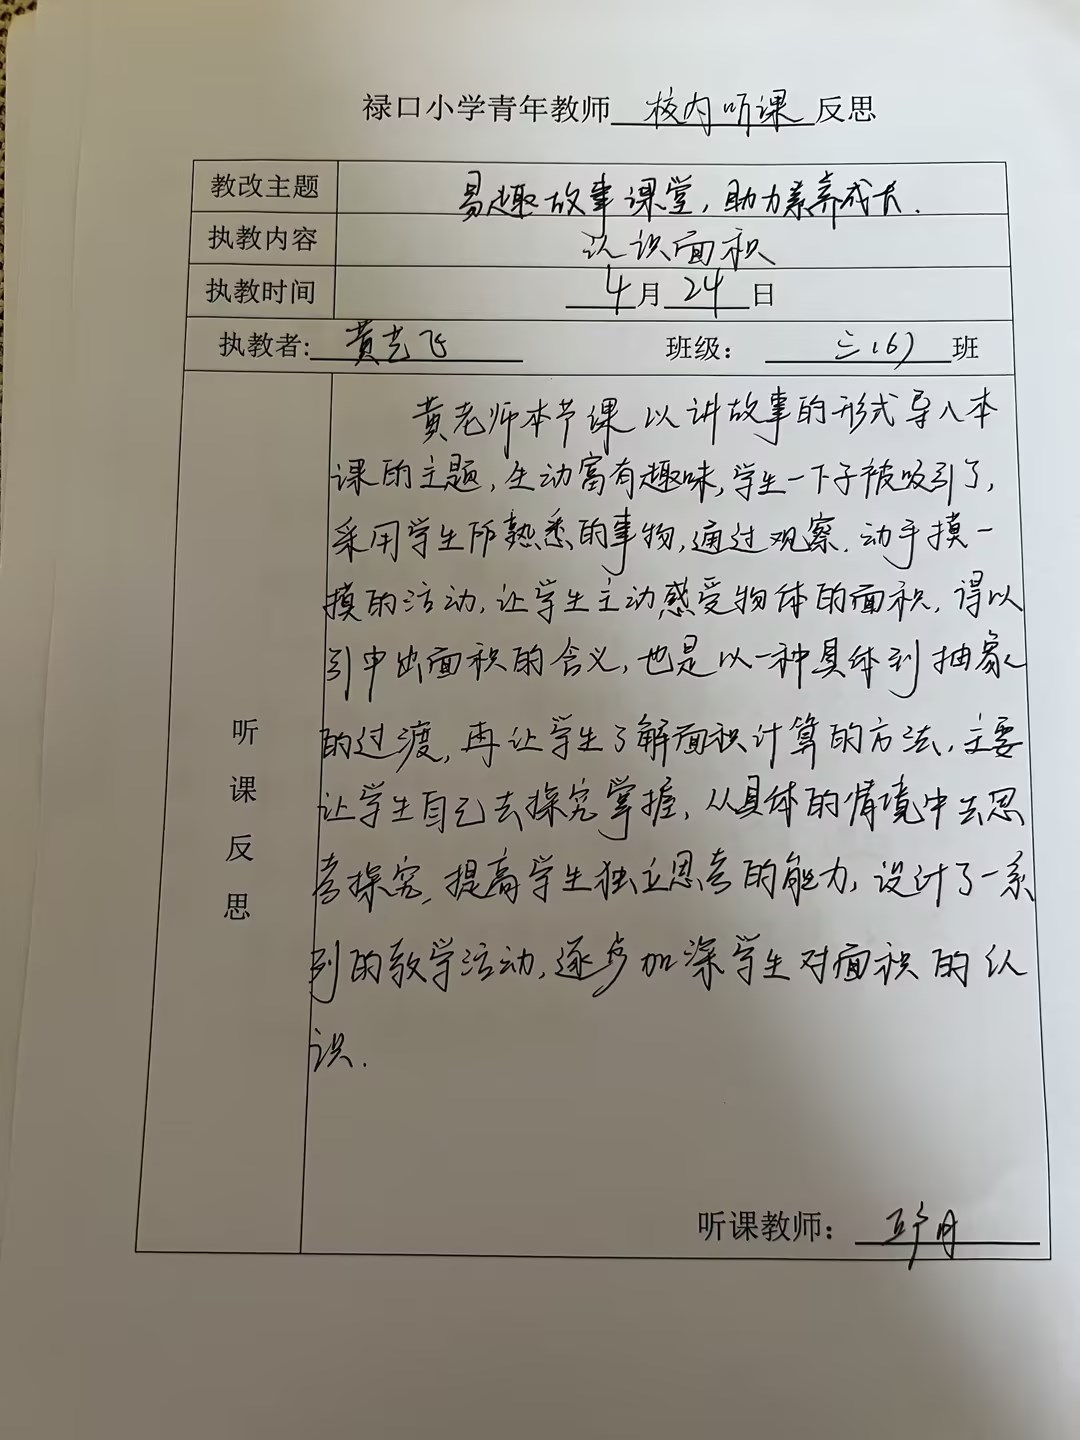 禄口小学青年教师 校内听课 反思
教改主题 易趣故事课堂，助力素养成长.
执教内容 认识面积
执教时间 4月24日
执教者: 黄艺飞 班级： 三（6）班
黄老师本节课以讲故事的形式导入本
课的主题，生动富有趣味，学生一下子被吸引了，
采用学生所熟悉的事物，通过观察、动手摸一
摸的活动，让学生主动感受物体的面积，得以
引申出面积的含义，也是以一种具体到抽象
的过渡，再让学生了解面积计算的方法，主要
让学生自己去探究掌握，从具体的情境中去思
考探究，提高学生独立思考的能力，设计了一系
列的教学活动，逐步加深学生对面积的认
识.
听
课
反
思
听课教师：